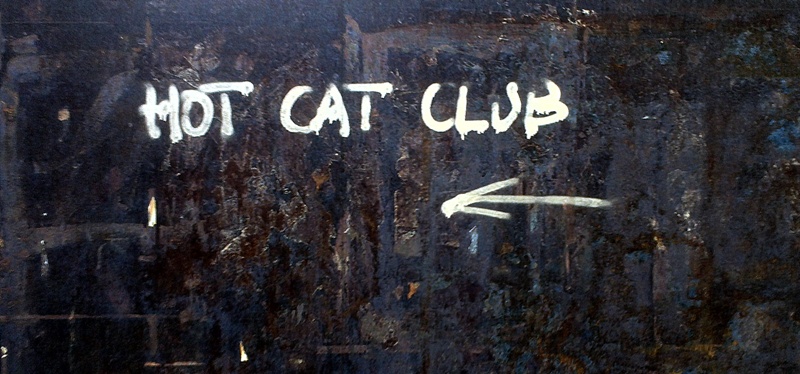 HOT CAT CLUB